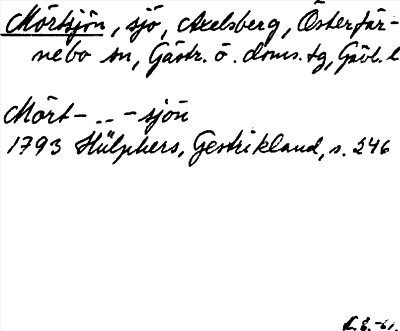 Mörtsjön, sjö, Axelsberg, Österfär-
nebo sn, Gästr. ö. doms. tg, Gävl. l
Mört- .. -sjön
1793 Hülphers, Gestrikland, s. 246